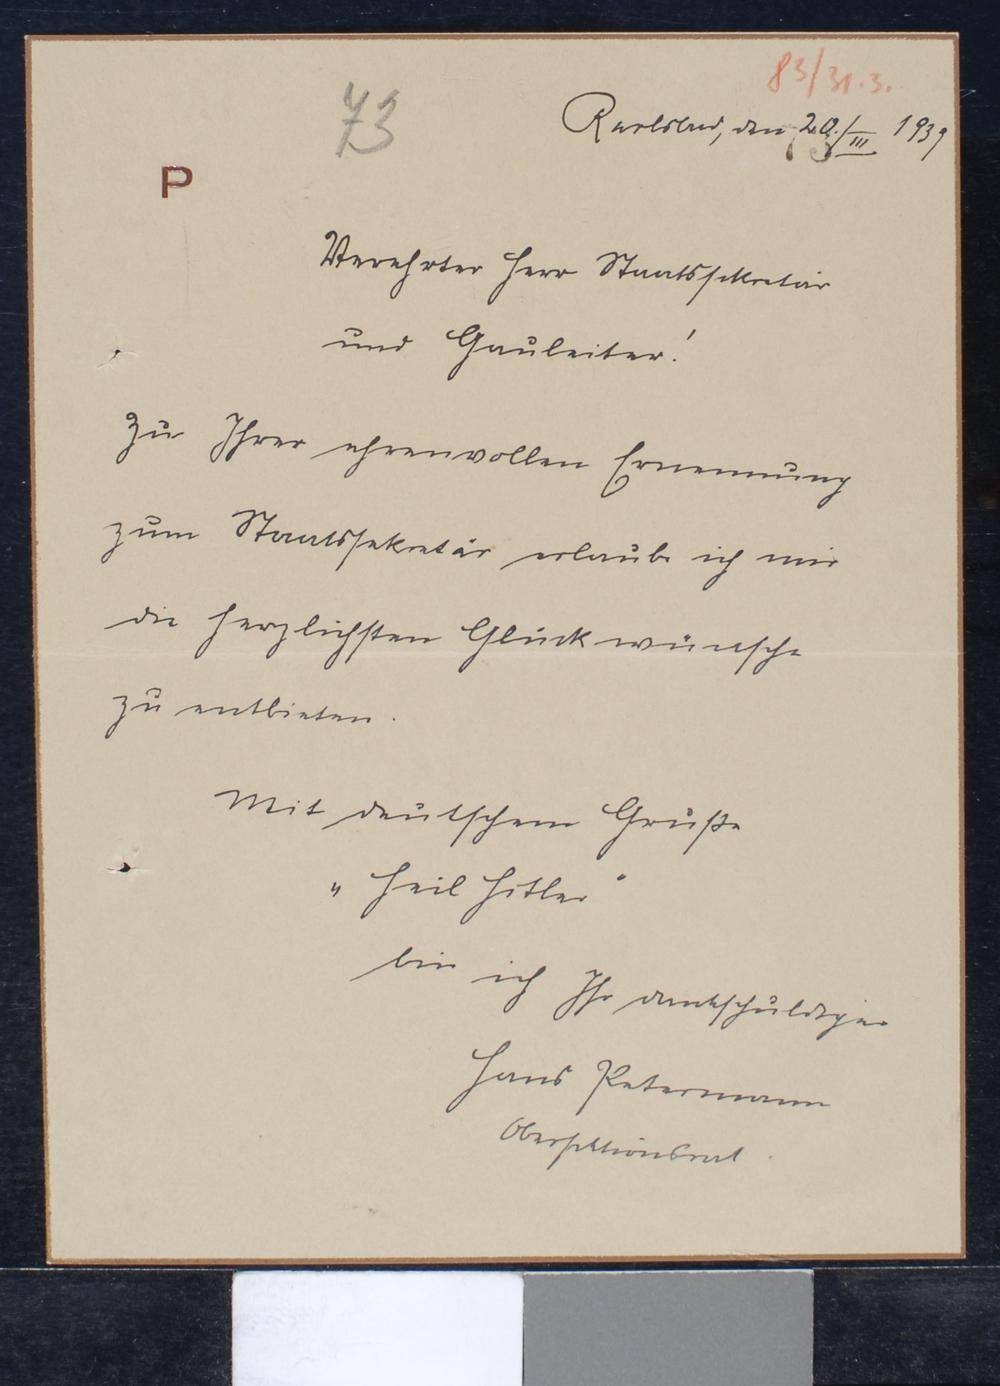 83/31.3.
73
Karlsbad, den 20./III 1939
P
Verehrter Herr Staatssekretär
und Gauleiter!
Zu Ihrer ehrenvollen Ernennung
zum Staatssekretär erlaube ich mir
die herzlichsten Glückwünsche
zu entbieten.
Mit deutschem Gruße
"Heil Hitler"
bin ich Ihr dankschuldiger
Hans Petermann
Obersektionsrat.